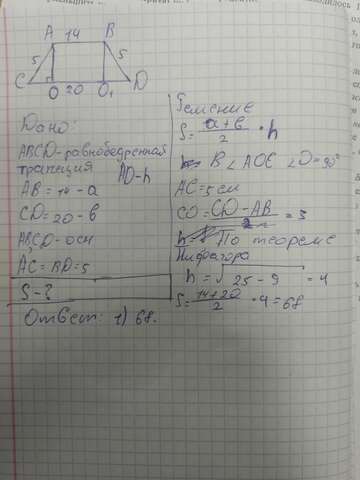 A 14 B
5 5
C O 20 O₁ D
Дано:
ABCD-равнобедренная
трапеция AO-h
AB = 14 - a
CD = 20 - b
AB, CD - осн
AC = BD = 5
S - ?
Ответ: 1) 68.
Решение
S = a + b / 2 · h
В ∠ AOC ∠O = 90°
AC = 5 см
CO = CD - AB / 2 = 3
По теореме
Пифагора
h = √25 - 9 = 4
S = 14 + 20 / 2 · 4 = 68